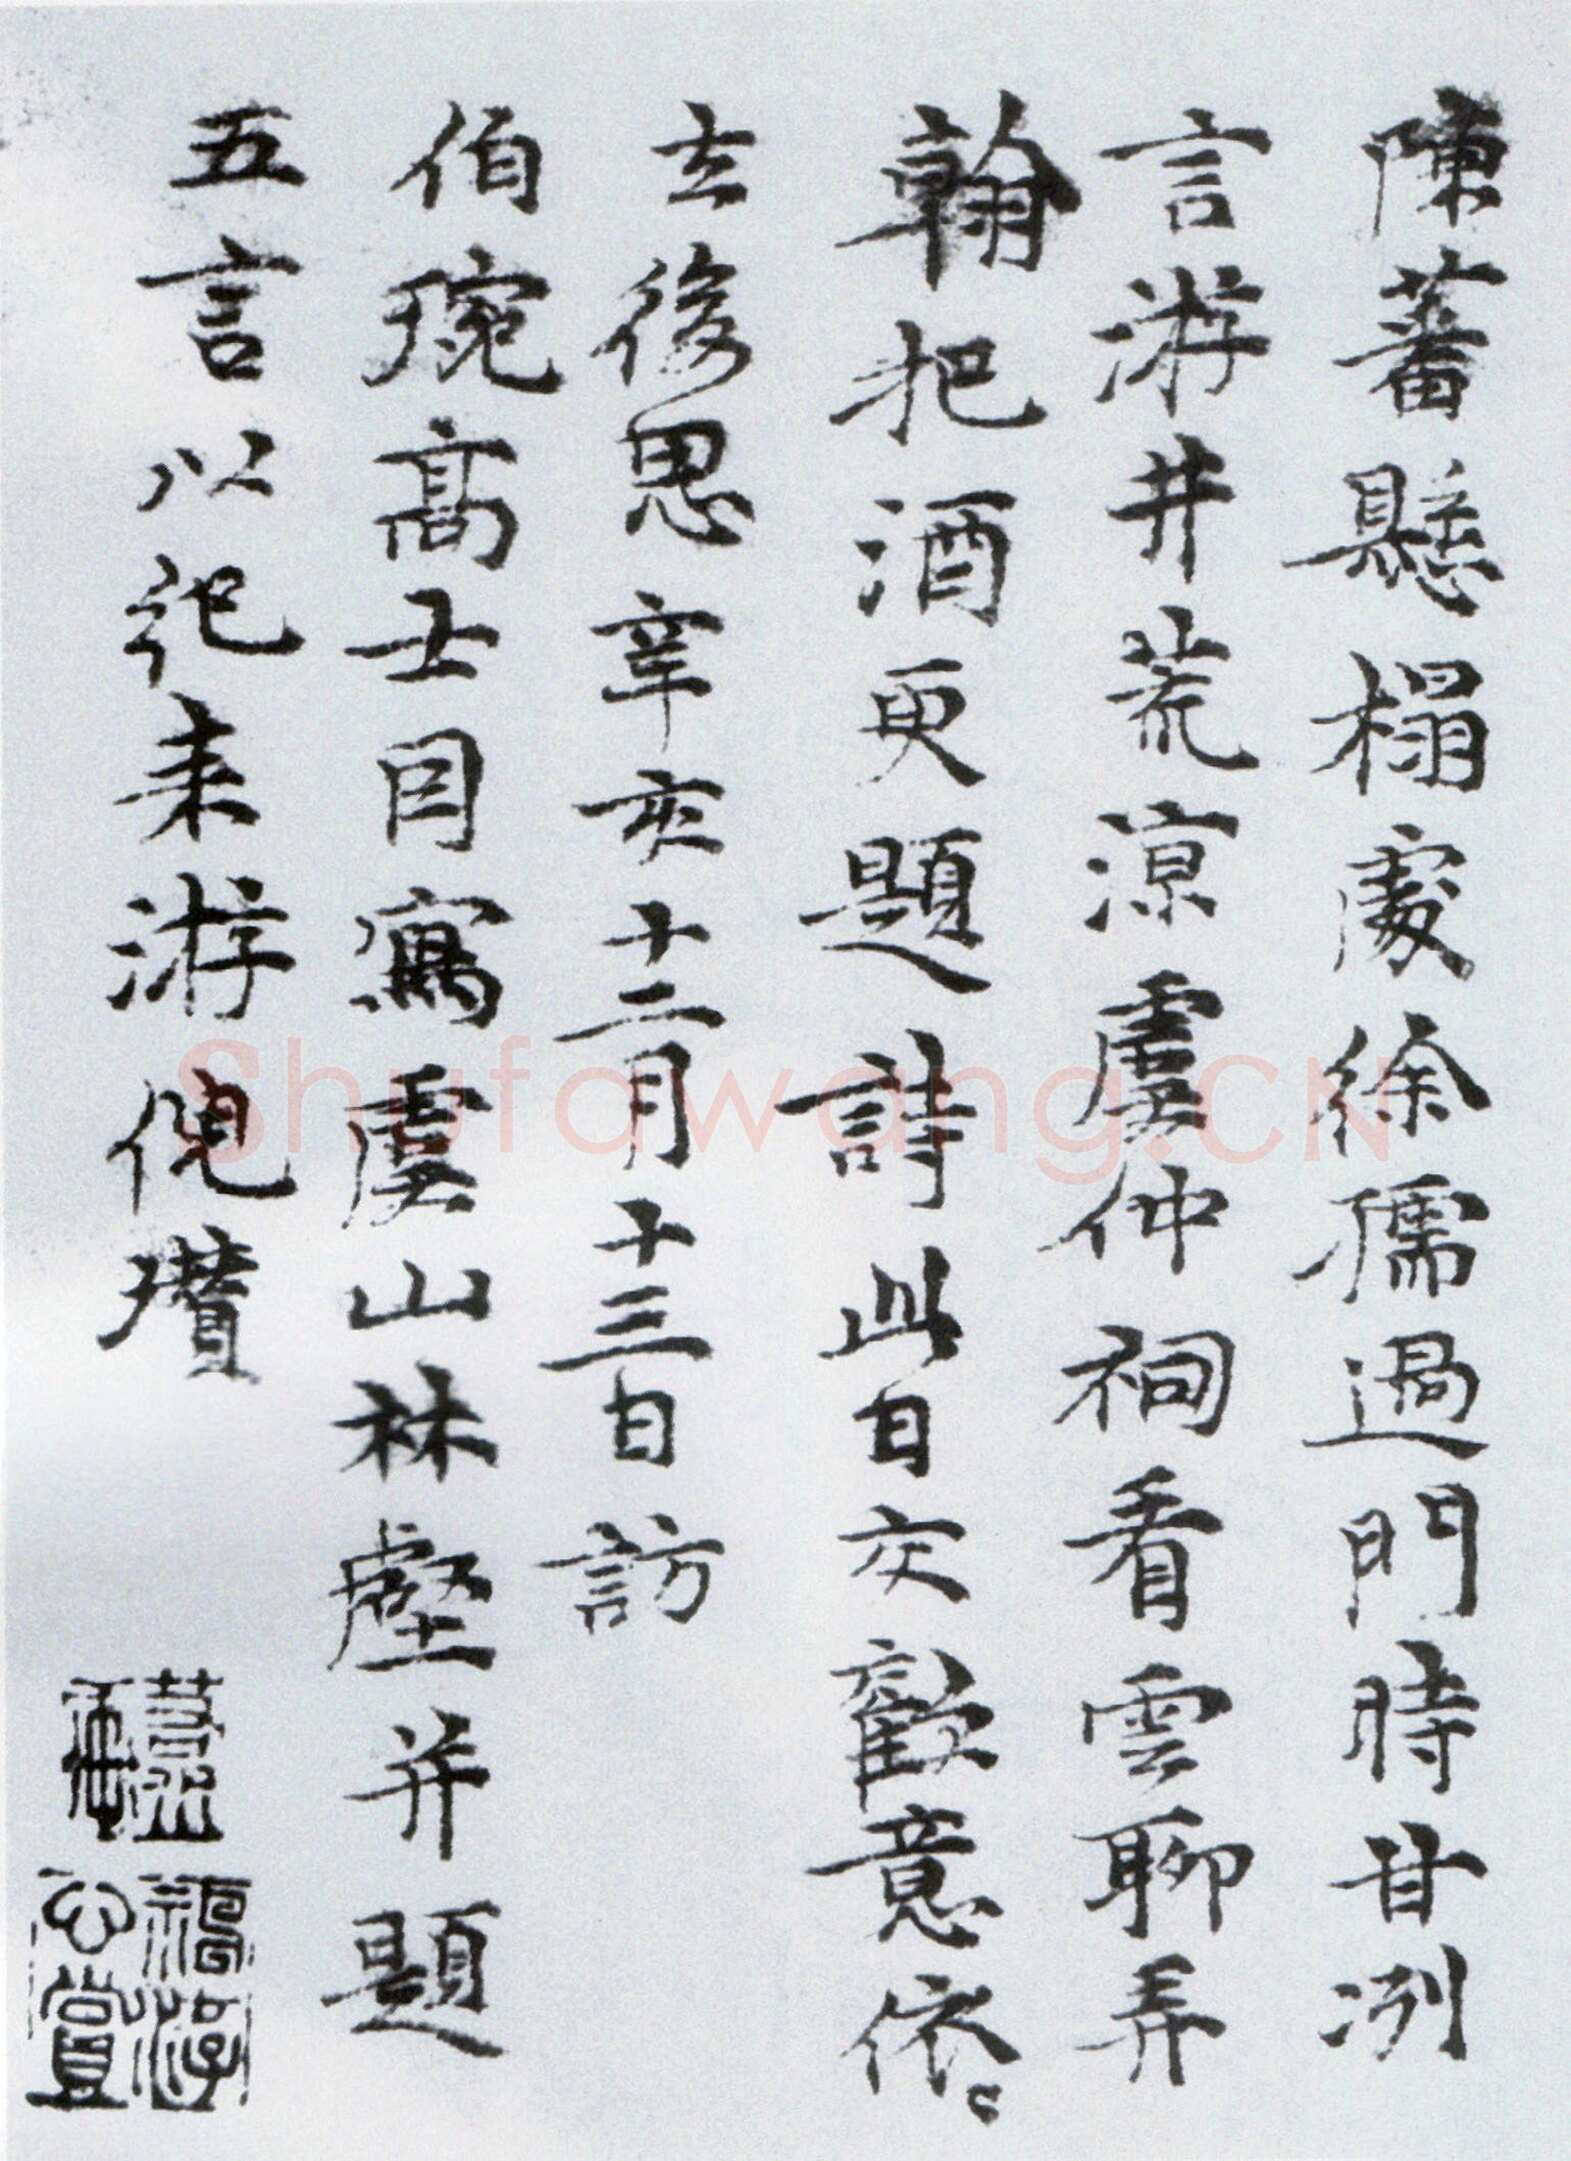 陳蕃懸榻處徐孺過門時甘冽
言游井荒涼虞仲祠看雲聊弄
翰把酒更題詩此日交歡意依〻
去後思辛亥十二月十三日訪
伯琬高士因寫虞山林壑并題
五言以紀来游倪瓚
Shufawang.CN